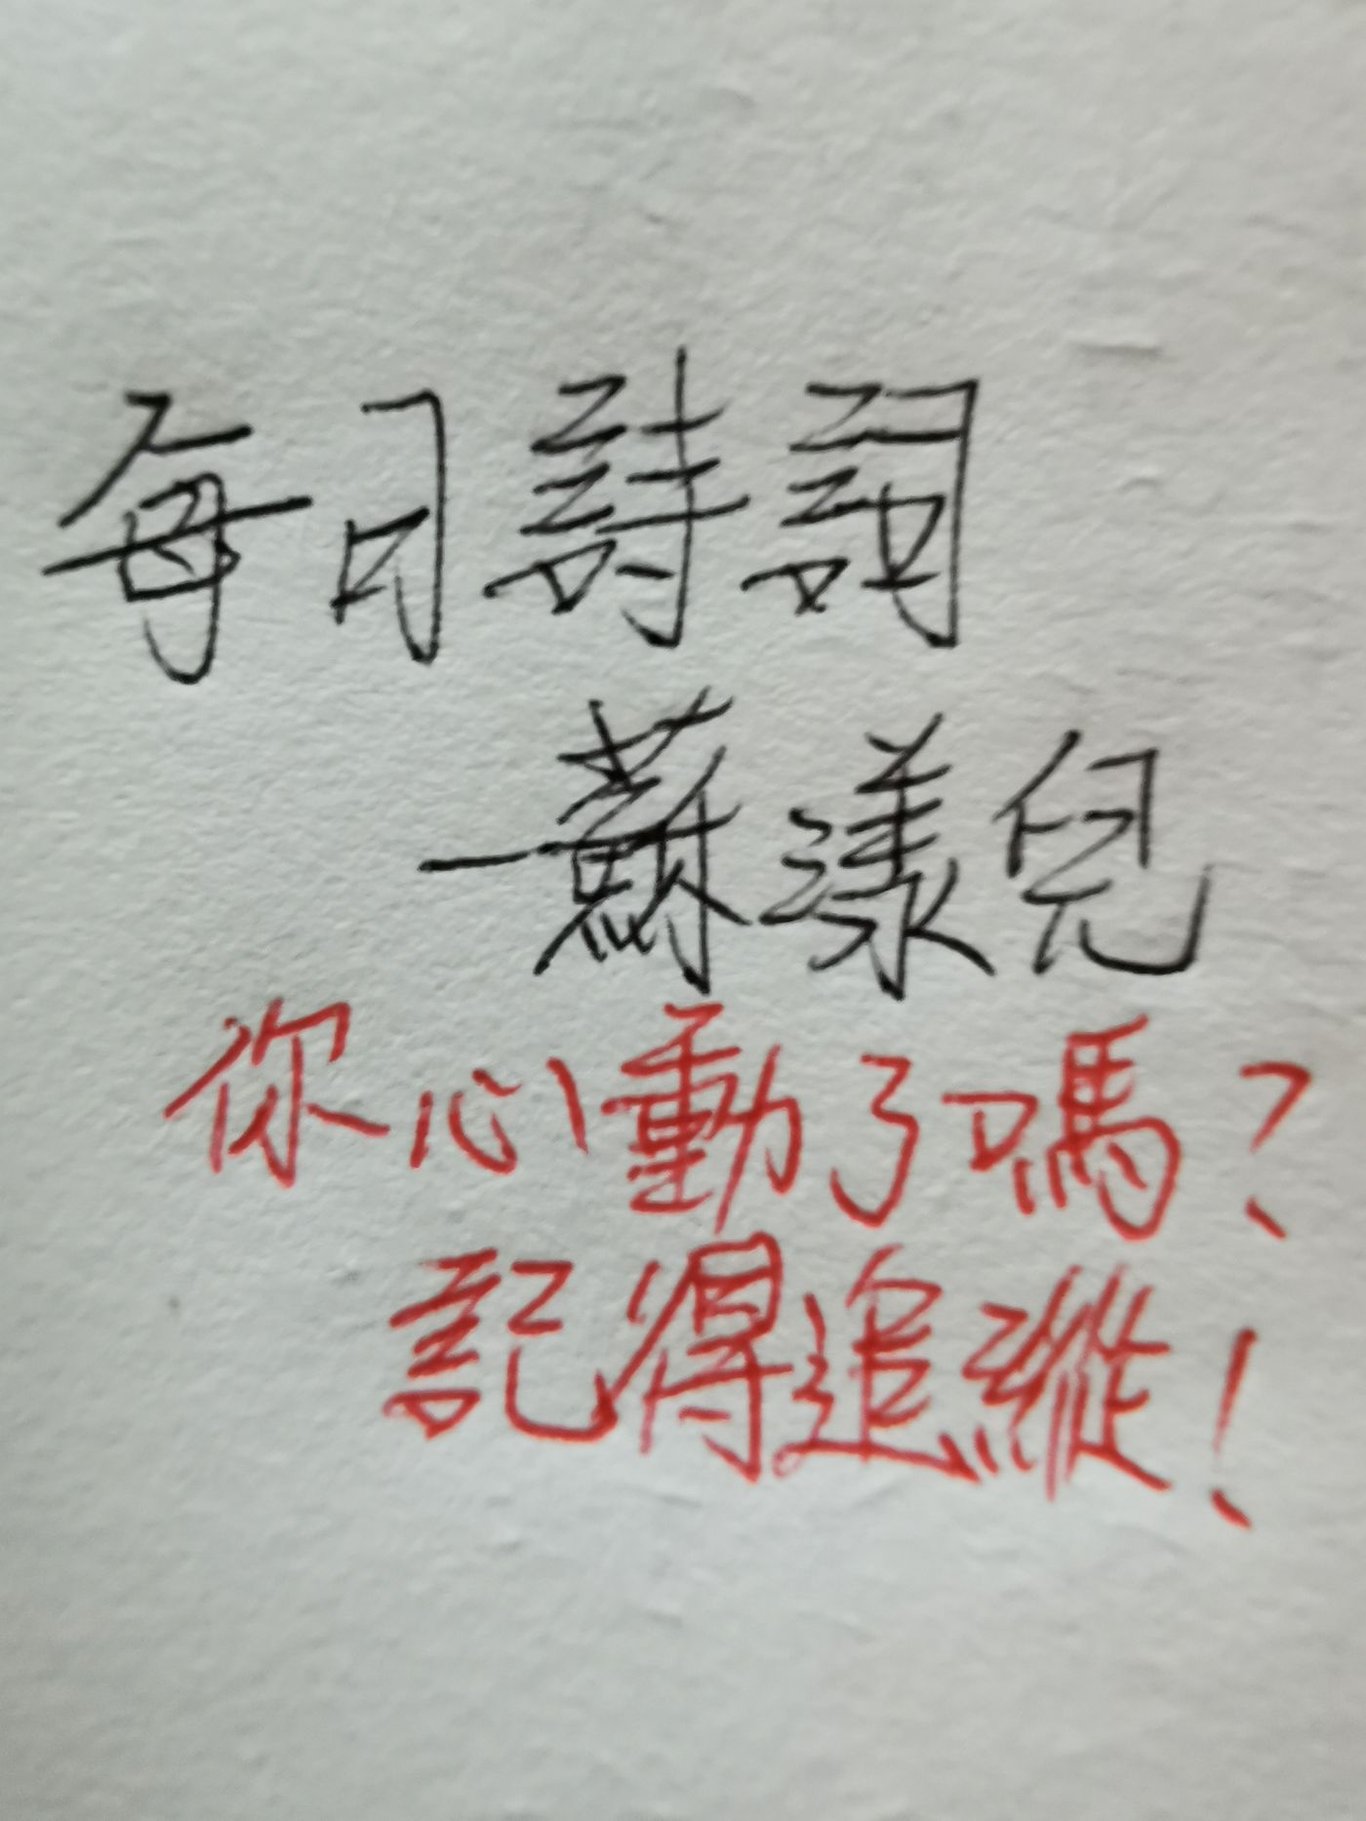 每日詩詞
一蘇漾兒
你心動了嗎?
記得追縱!